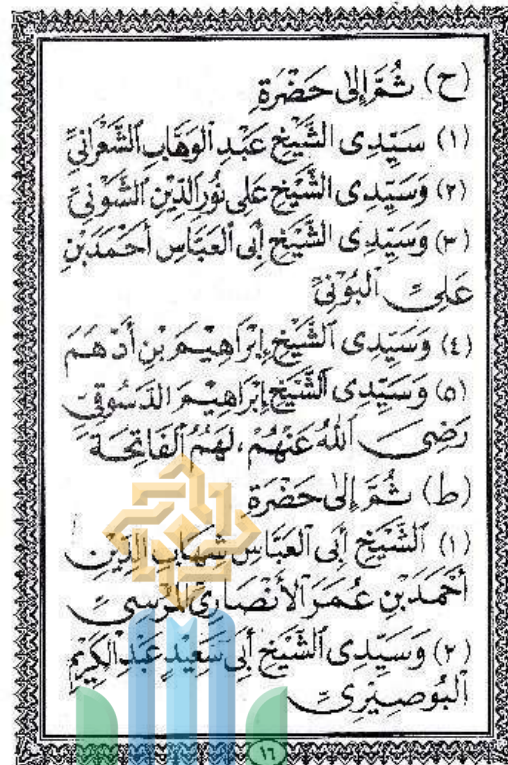 (ح) ثُمَّ إِلَى حَضْرَةِ
(١) سَيِّدِى الشَّيْخِ عَبْدِ الْوَهَّابِ الشَّعْرَانِيِّ
(٢) وَسَيِّدِى الشَّيْخِ عَلِى نُورِ الدِّيْنِ الشَّوْنِيِّ
(٣) وَسَيِّدِى الشَّيْخِ أَبِى الْعَبَّاسِ أَحْمَدَ بْنِ
عَلِيٍّ الْبُوْنِيِّ
(٤) وَسَيِّدِى الشَّيْخِ إِبْرَاهِيْمَ بْنِ أَدْهَمَ
(٥) وَسَيِّدِى الشَّيْخِ إِبْرَاهِيْمَ الدَّسُوْقِيِّ
رَضِيَ اللهُ عَنْهُمْ، لَهُمُ الْفَاتِحَةَ
(ط) ثُمَّ إِلَى حَضْرَةِ
(١) الشَّيْخِ أَبِى الْعَبَّاسِ شِهَابِ الدِّيْنِ
أَحْمَدَ بْنِ عُمَرَ الْأَنْصَارِيِّ الْمُرْسِيِّ
(٢) وَسَيِّدِى الشَّيْخِ أَبِى سَعِيْدٍ عَبْدِ الْكَرِيْمِ
الْبُوصِيْرِيِّ
١٦